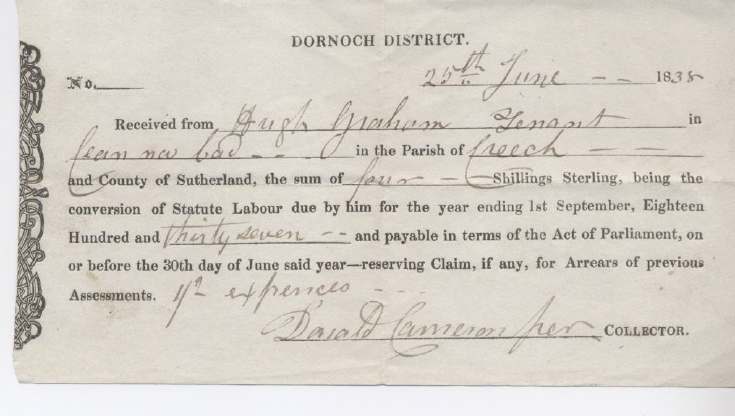 DORNOCH DISTRICT.
No. 25th June 1838
Received from Hugh Graham Tenant in
in the Parish of Creech
and County of Sutherland, the sum of four Shillings Sterling, being the
conversion of Statute Labour due by him for the year ending 1st September, Eighteen
Hundred and thirty seven and payable in terms of the Act of Parliament, on
or before the 30th day of June said year—reserving Claim, if any, for Arrears of previous
Assessments. expences
Donald Cameron per COLLECTOR.